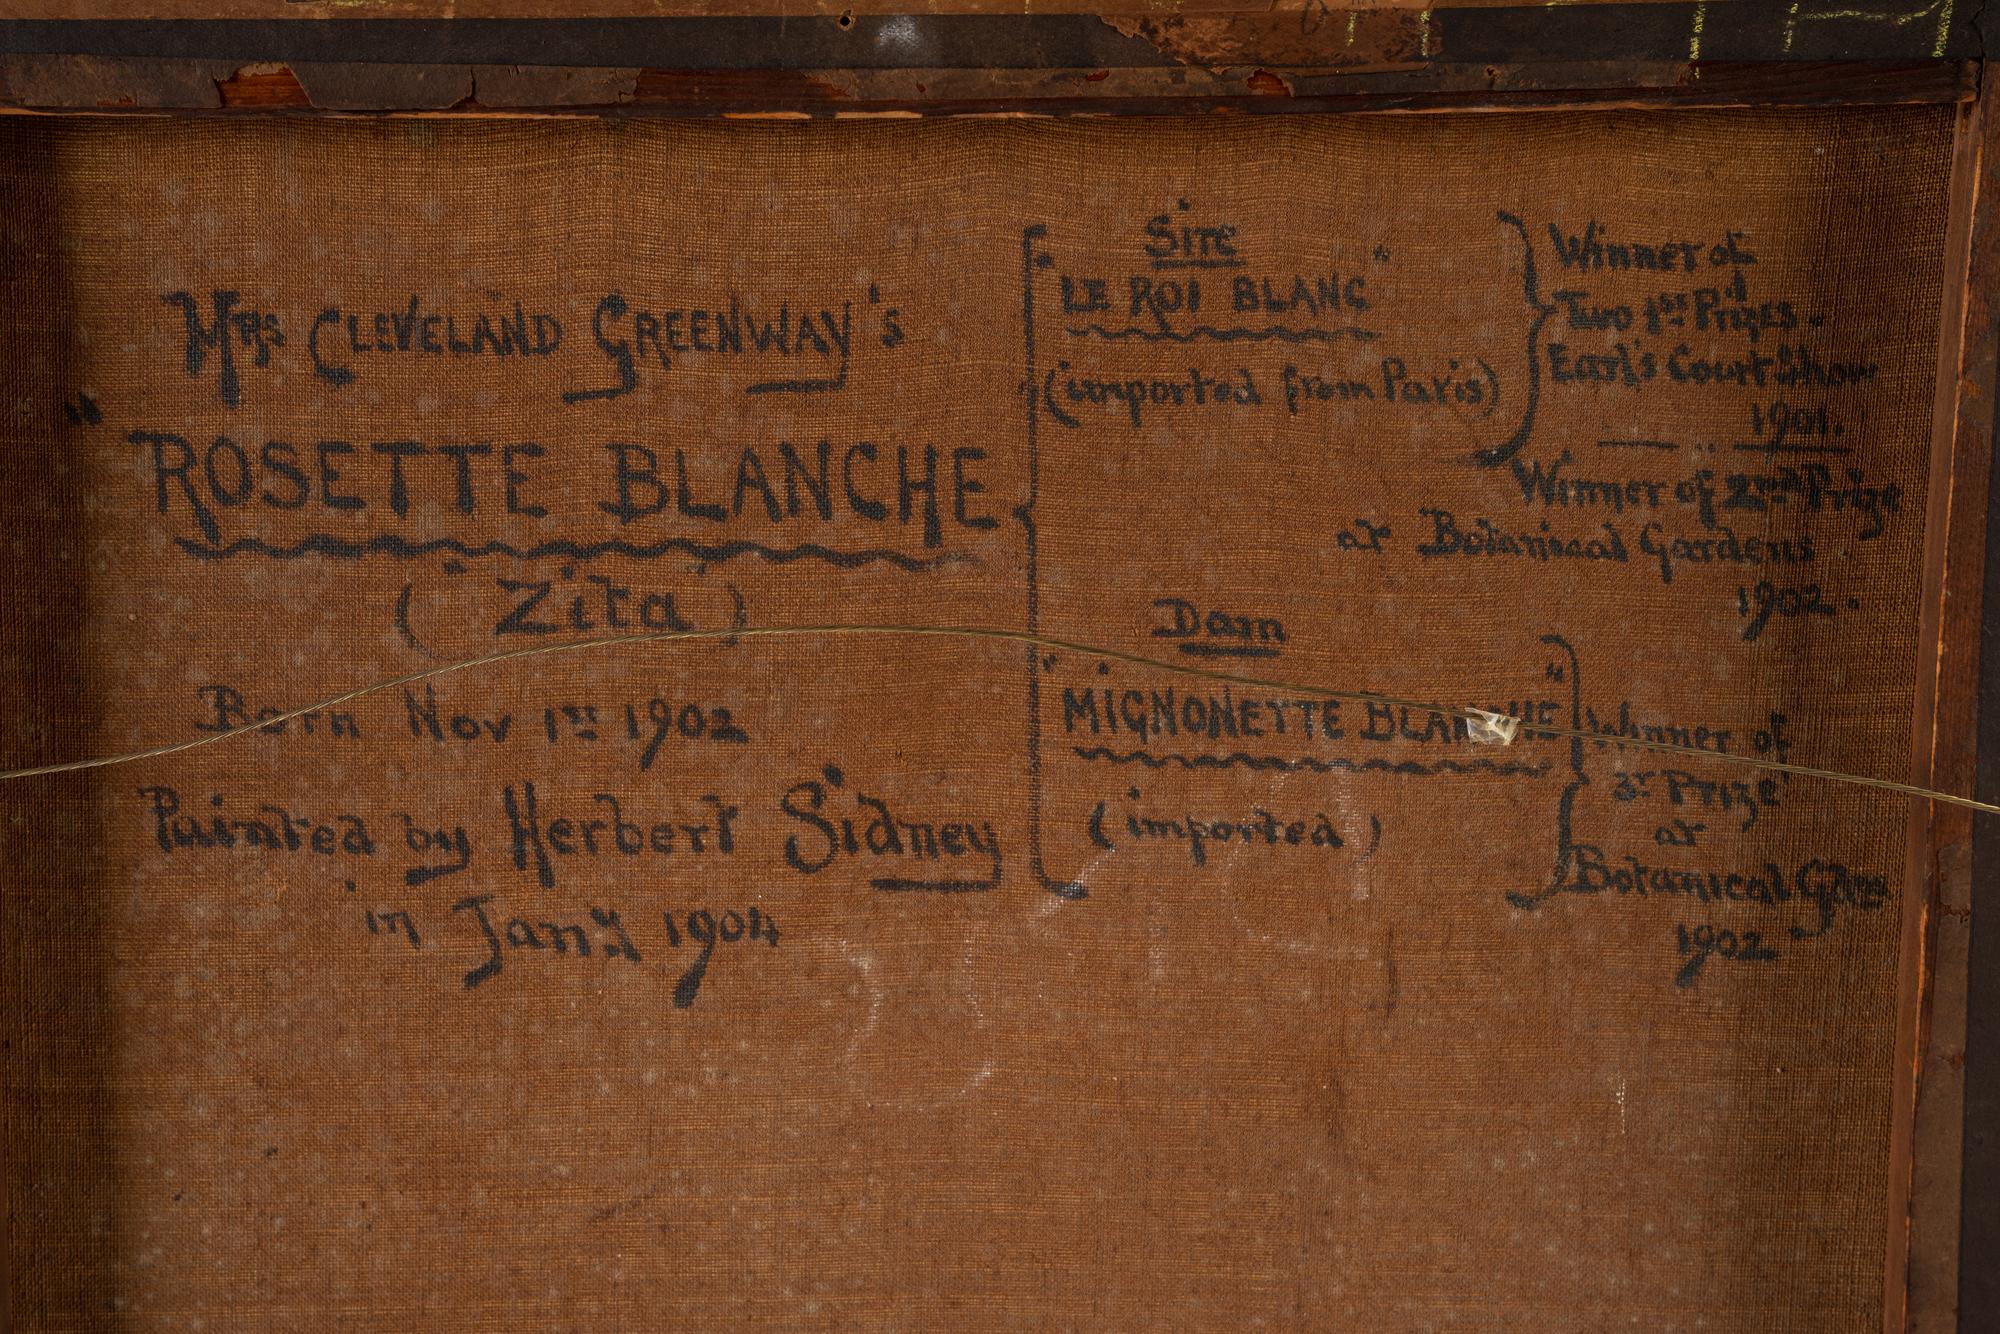 Mrs CLEVELAND GREENWAY's
"ROSETTE BLANCHE
("Zita")
Born Nov 1st 1902
Painted by Herbert Sidney
in Jany 1904
Sire
"LE ROI BLANC"
(imported from Paris)
Winner of
Two 1st Prizes.
Earl's Court Show
1901.
Winner of 2nd Prize
at Botanical Gardens
1902.
Dam
"MIGNONETTE BLANCHE"
(imported)
Winner of
3r Prize
at
Botanical Gdns
1902